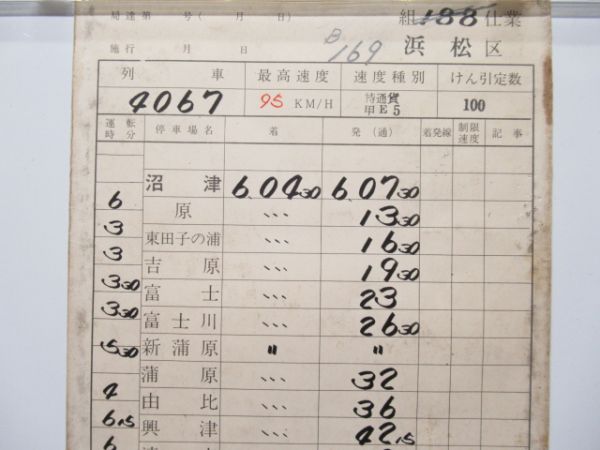 局達第 号( 月 日) 組 188 仕業
施行 月 日 B169 浜松区
列車 最高速度 速度種別 けん引定数
4067 95 KM/H 特通貨甲E5 100
運転時分 停車場名 着 発(通) 着発線 制限速度 記事
沼津 6.04 30 6.07 30
6 原 … 13 30
3 東田子の浦 … 16 30
3 吉原 … 19 30
3 30 富士 … 23
3 30 富士川 … 26 30
5 30 新蒲原 〃 〃
蒲原 … 32
4 由比 … 36
6 15 興津 … 42 15
6